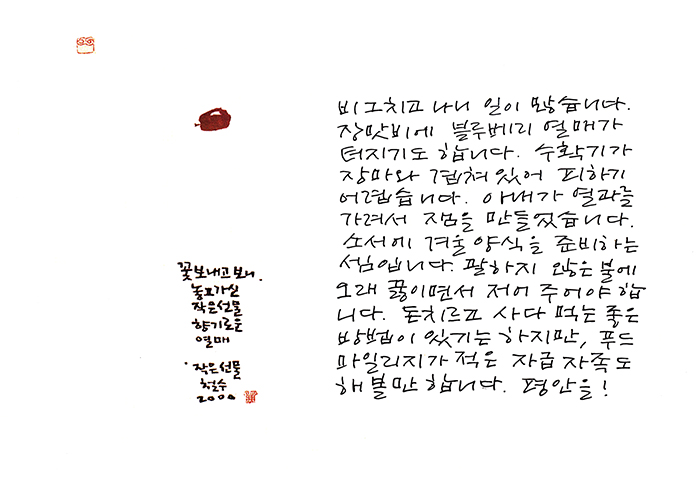 꽃 보내고 보니,
놓고가신
작은선물
향기로운
열매
작은선물
철수
2000
비 그치고 나니 일이 많습니다.
장맛비에 블루베리 열매가
터지기도 합니다. 수확기가
장마와 겹쳐 있어 피하기
어렵습니다. 아내가 열과를
가려서 잼을 만들었습니다.
소서에 겨울 양식을 준비하는
셈입니다. 팔하지 않은 불에
오래 끓이면서 저어 주어야 합
니다. 돈치르고 사다 먹는 좋은
방법이 있기는 하지만, 푸드
마일리지가 적은 자급 자족도
해 볼만 합니다. 평안을!